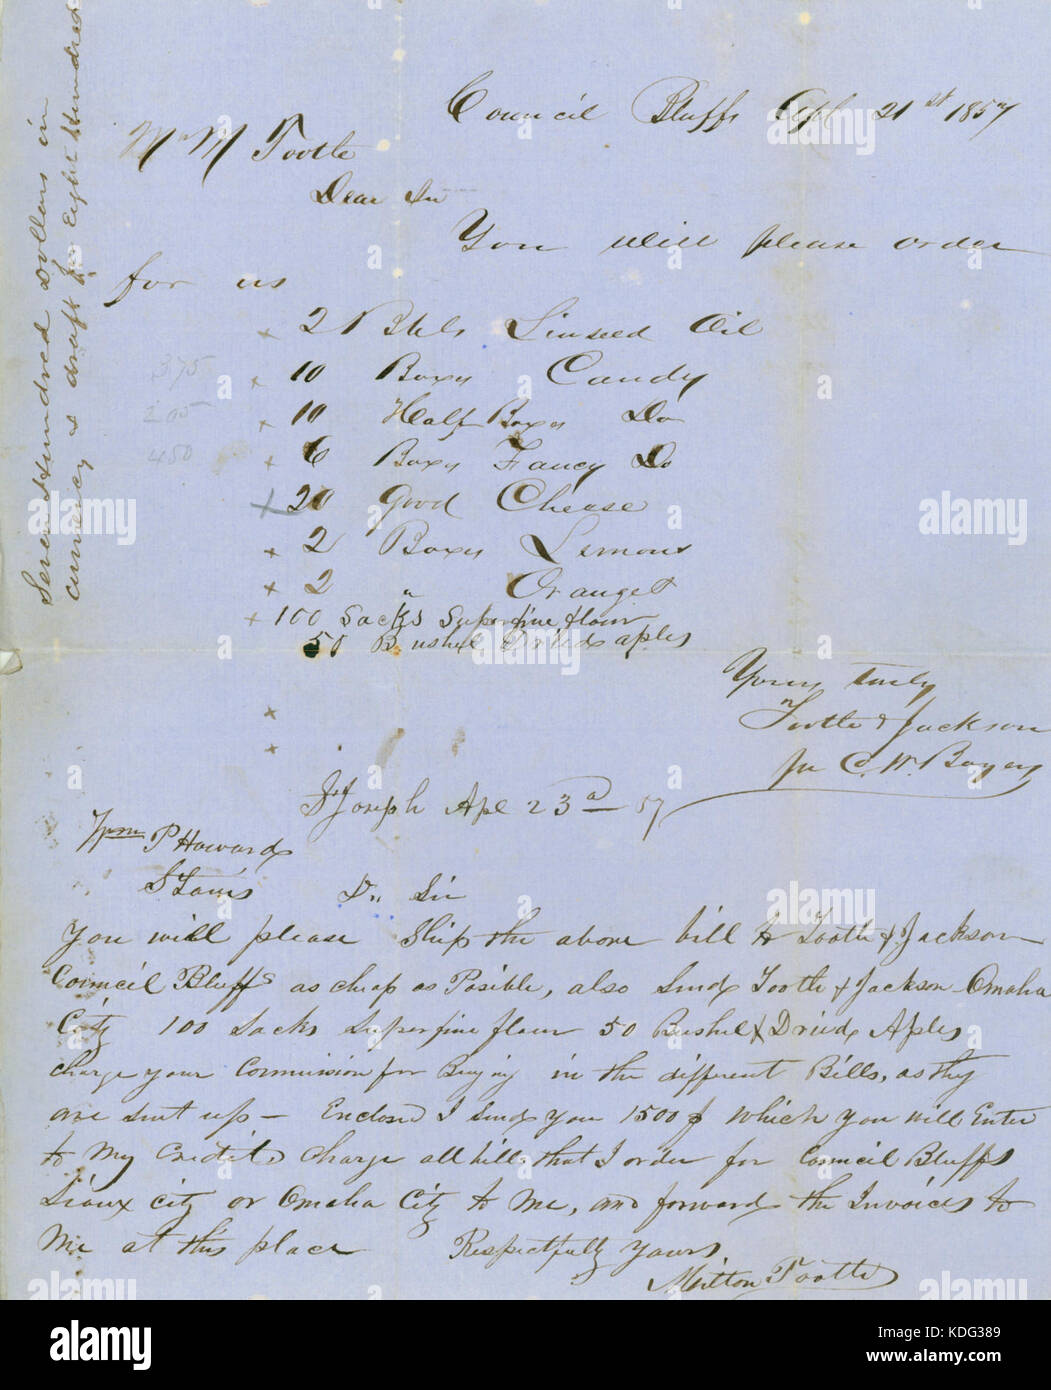 Council Bluffs Apl 21st 1857
Mr M Tootle
Dear Sir
You will please order
for us
2 Bbls Linseed Oil
10 Boxes Candy
10 Half Boxes Do
6 Boxes Fancy Do
20 Good Cheese
2 Boxes Lemons
2 " Oranges
100 Sacks Superfine flour
50 Bushel Dried aples
375
205
450
Yours truly
Tootle & Jackson
per C. W. Boyers
Seven Hundred dollars in
currency & draft for Eight Hundred
St Joseph Apl 23d 57
P Howard
St Louis
Dr Sir
You will please Ship the above bill to Tootle & Jackson
Council Bluffs as cheap as Posible, also Send Tootle & Jackson Omaha
City 100 Sacks Superfine flour 50 Bushel Dried Aples
charge your Commission for Buying in the different Bills, as they
are sent up - Enclosed I send you 1500$ which you will Enter
to My Credit & charge all bills that I order for Council Bluffs
Sioux City or Omaha City to Me, and forward the Invoices to
Me at this place Respectfully Yours
Milton Tootle
alamy
Image ID: KDG389
www.alamy.com